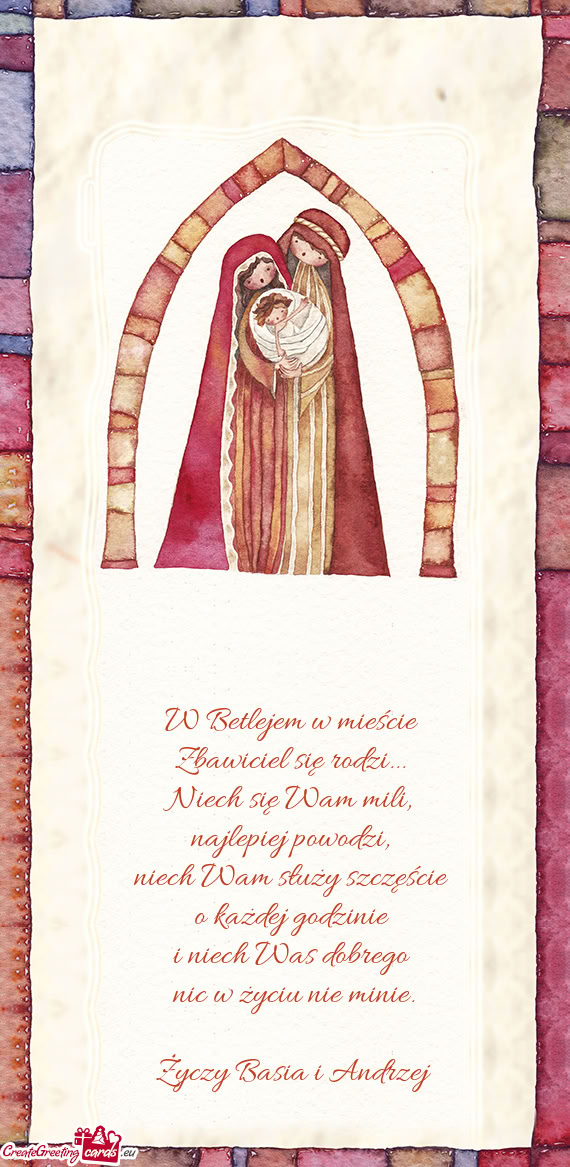 W Betlejem w mieście
Zbawiciel się rodzi...
Niech się Wam mili,
najlepiej powodzi,
niech Wam służy szczęście
o każdej godzinie
i niech Was dobrego
nic w życiu nie minie.
Życzy Basia i Andrzej
CreateGreeting cards .eu